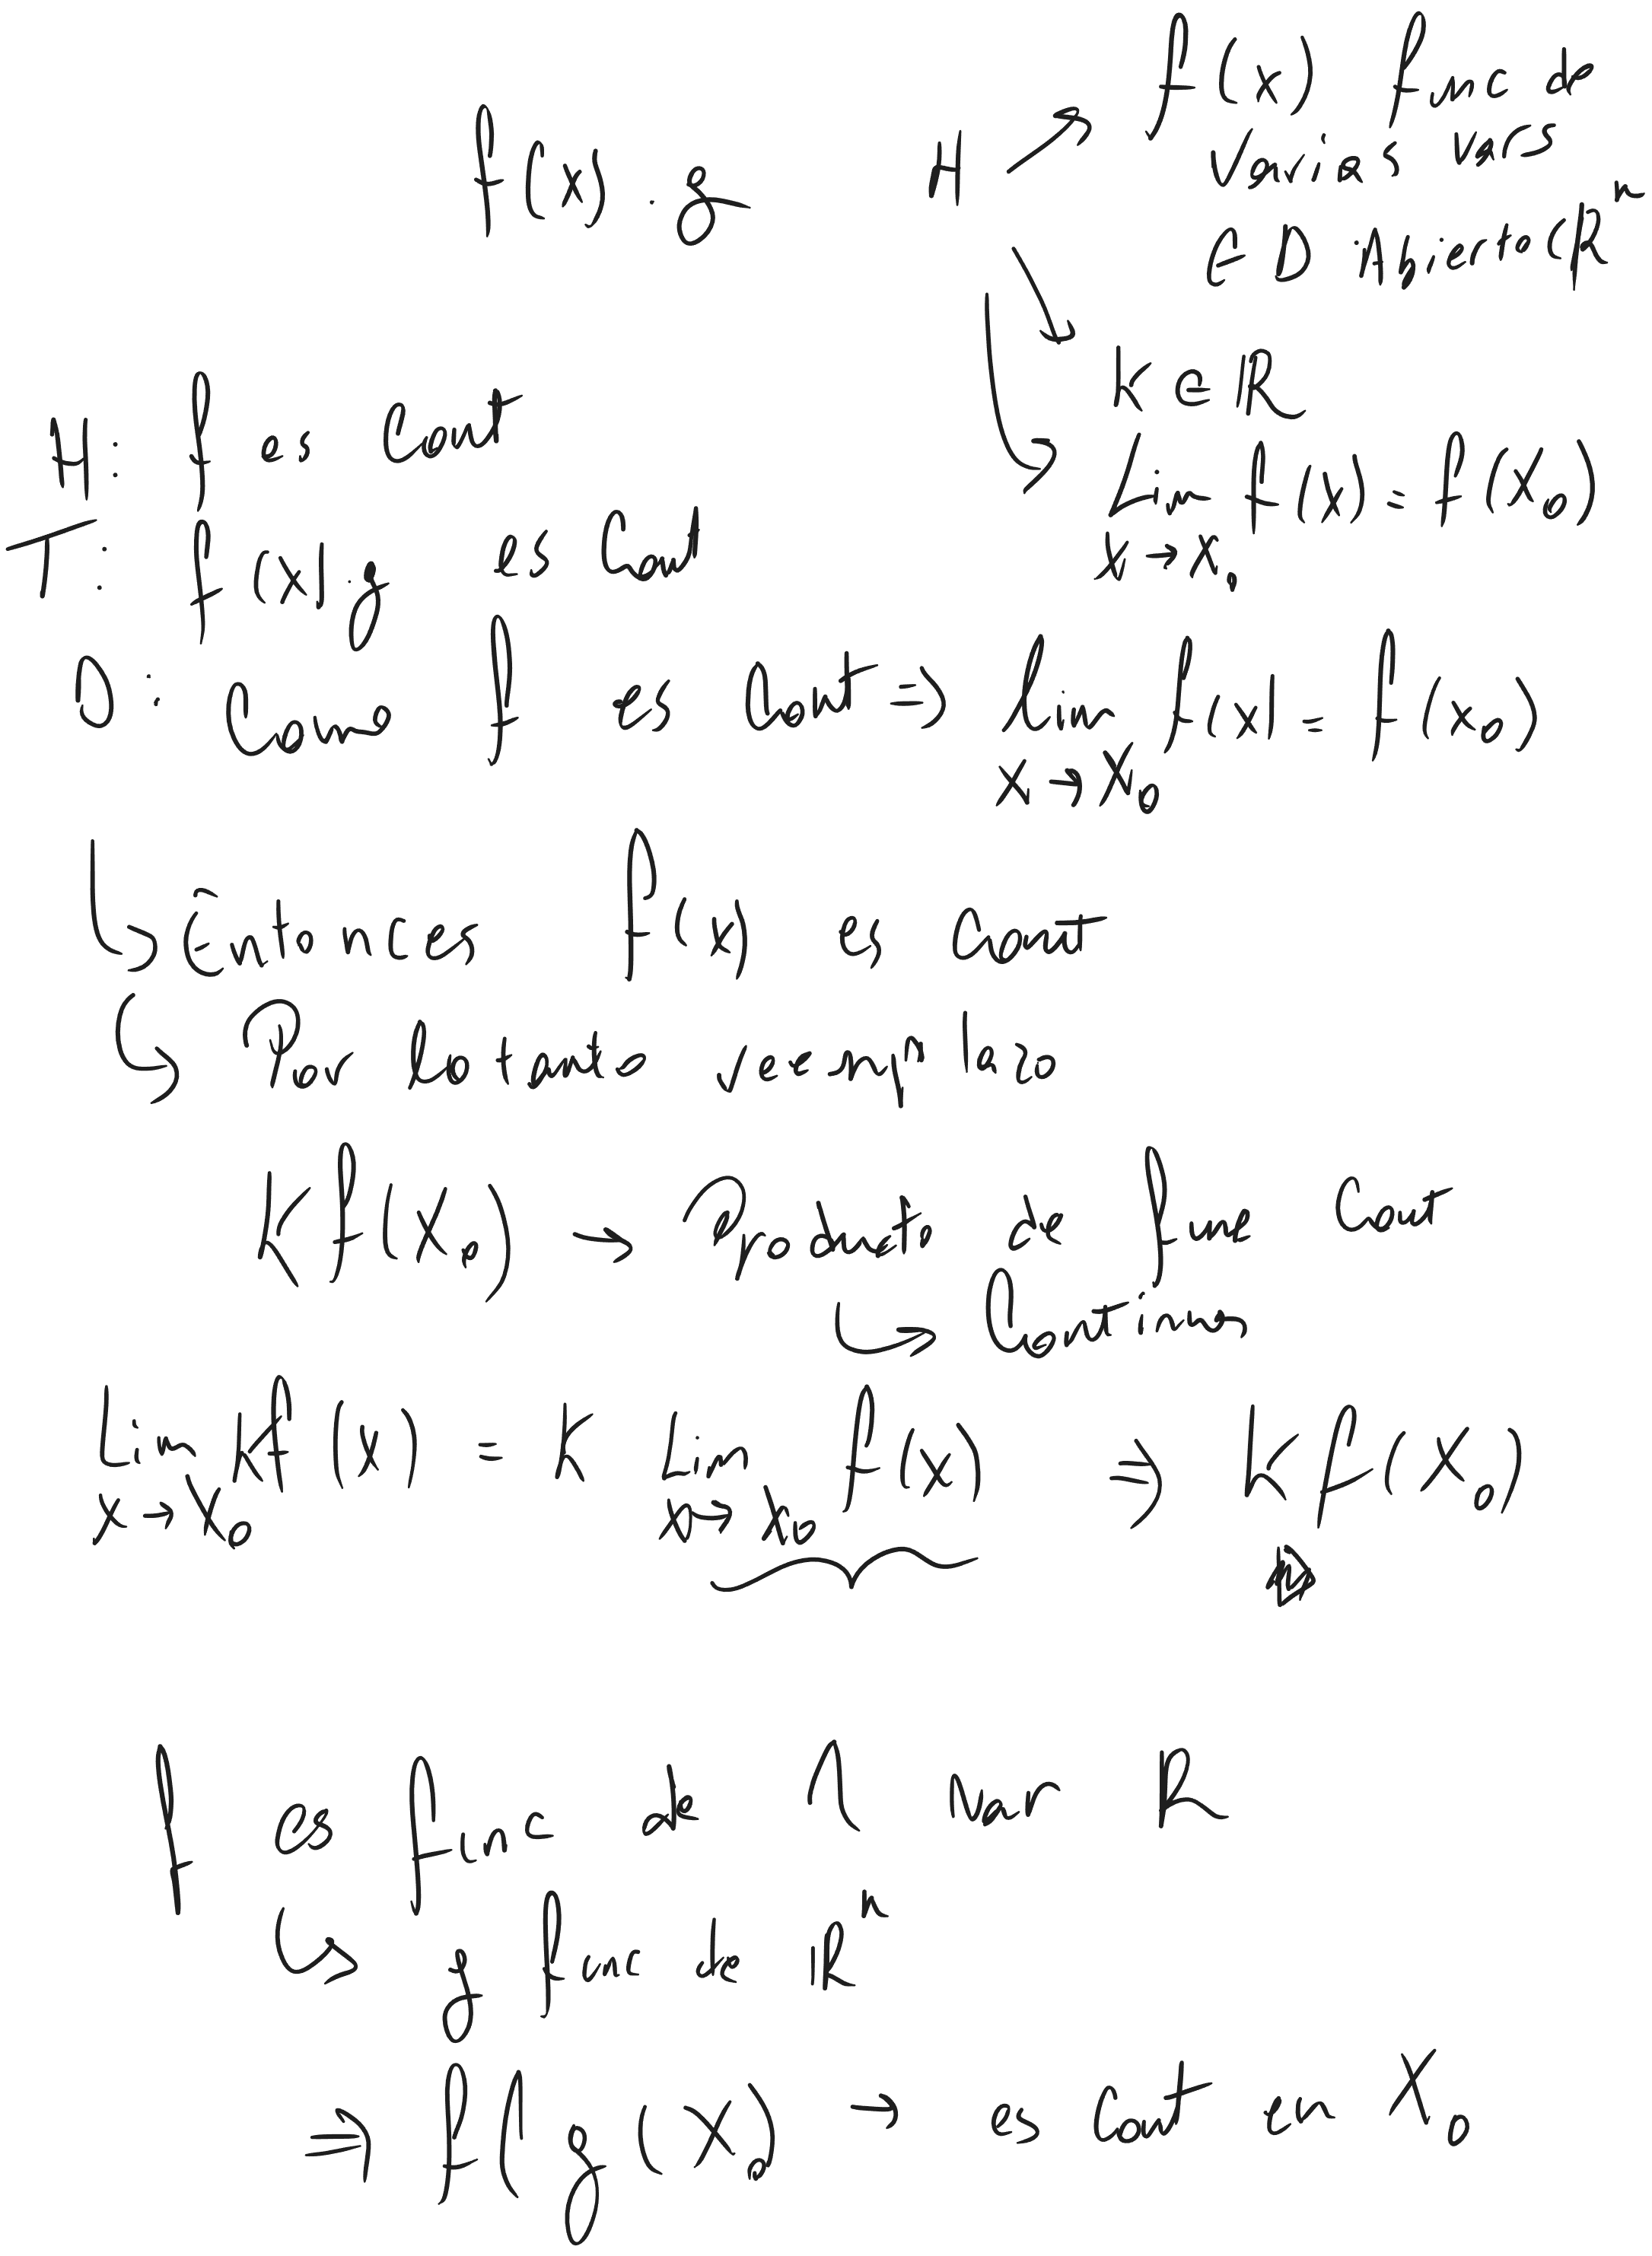 f(x) func de
varias vars
∈ D Abierto ⊂ ℝⁿ
f(x) . g
H ↗
K ∈ ℝ
Lim f(x) = f(x₀)
x → x₀
H: f es Cont
T: f(x).g es Cont
D: Como f es Cont ⇒ lim f(x) = f(x₀)
x → x₀
↳ Entonces f(x) es Cont
↳ Por lo tanto reemplazo
K f(x₀) → Producto de func Cont
↳ Continua
Lim Kf(x) = K Lim f(x) ⇒ K f(x₀)
x → x₀ x → x₀
f es func de 1 var ℝ
↳ g func de ℝⁿ
⇒ f(g(x₀) → es Cont en x₀